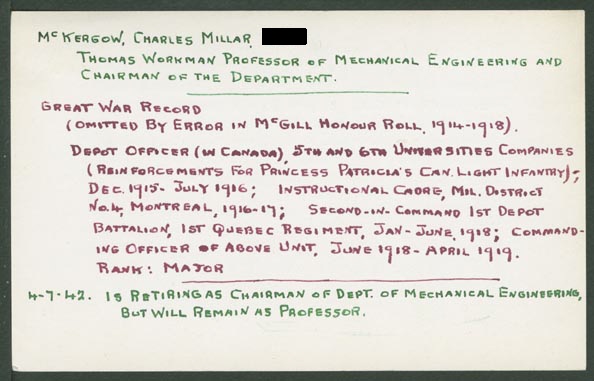 McKERGOW, CHARLES MILLAR,
THOMAS WORKMAN PROFESSOR OF MECHANICAL ENGINEERING AND
CHAIRMAN OF THE DEPARTMENT.
GREAT WAR RECORD
(OMITTED BY ERROR IN McGILL HONOUR ROLL, 1914-1918).
DEPOT OFFICER (IN CANADA), 5TH AND 6TH UNIVERSITIES COMPANIES
(REINFORCEMENTS FOR PRINCESS PATRICIA'S CAN. LIGHT INFANTRY);
DEC. 1915- JULY 1916; INSTRUCTIONAL CADRE, MIL. DISTRICT
NO. 4, MONTREAL, 1916-17; SECOND-IN-COMMAND 1ST DEPOT
BATTALION, 1ST QUEBEC REGIMENT, JAN-JUNE, 1918; COMMAND-
ING OFFICER OF ABOVE UNIT, JUNE 1918-APRIL 1919.
RANK: MAJOR
4-7-42. IS RETIRING AS CHAIRMAN OF DEPT. OF MECHANICAL ENGINEERING,
BUT WILL REMAIN AS PROFESSOR.